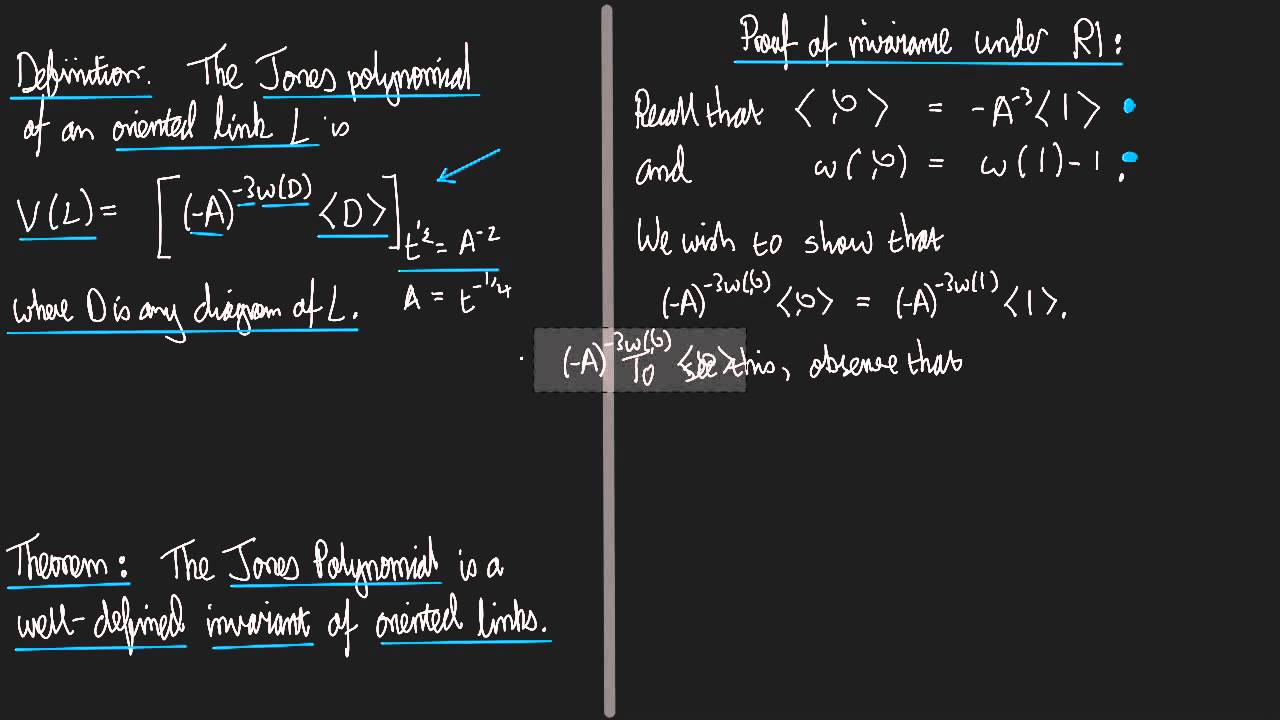 Definition: The Jones polynomial
of an oriented link L is
V(L) = [(-A)^{-3w(D)} <D>]_{t^{1/2} = A^{-2}}
A = t^{-1/4}
where D is any diagram of L.
Theorem: The Jones Polynomial is a
well-defined invariant of oriented links.
Proof of invariance under R1:
Recall that < > = -A^{-3}<1>
and w( ) = w(1)-1.
We wish to show that
(-A)^{-3w( )} < > = (-A)^{-3w(1)} <1>.
(-A)^{-3w( )} < >
To see this, observe that